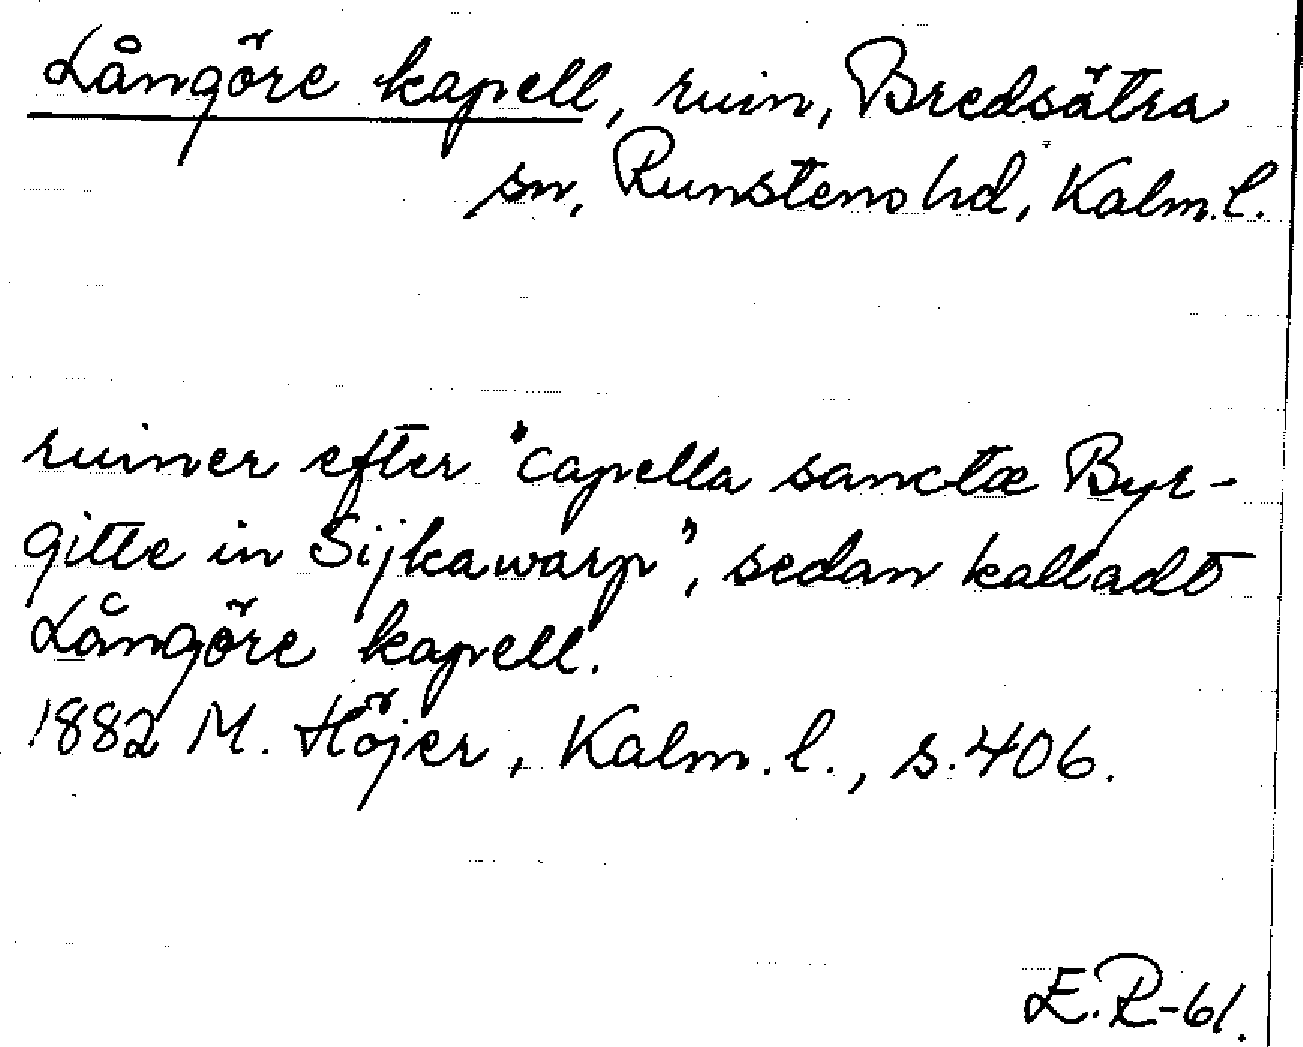 Långöre kapell, ruin, Bredsätra
sn, Runstens hd, Kalm. l.
ruiner efter "capella sanctæ Byr-
gitte in Sijkawarp", sedan kalladt
Långöre kapell.
1882 M. Höjer, Kalm. l., s. 406.
E.R-61.